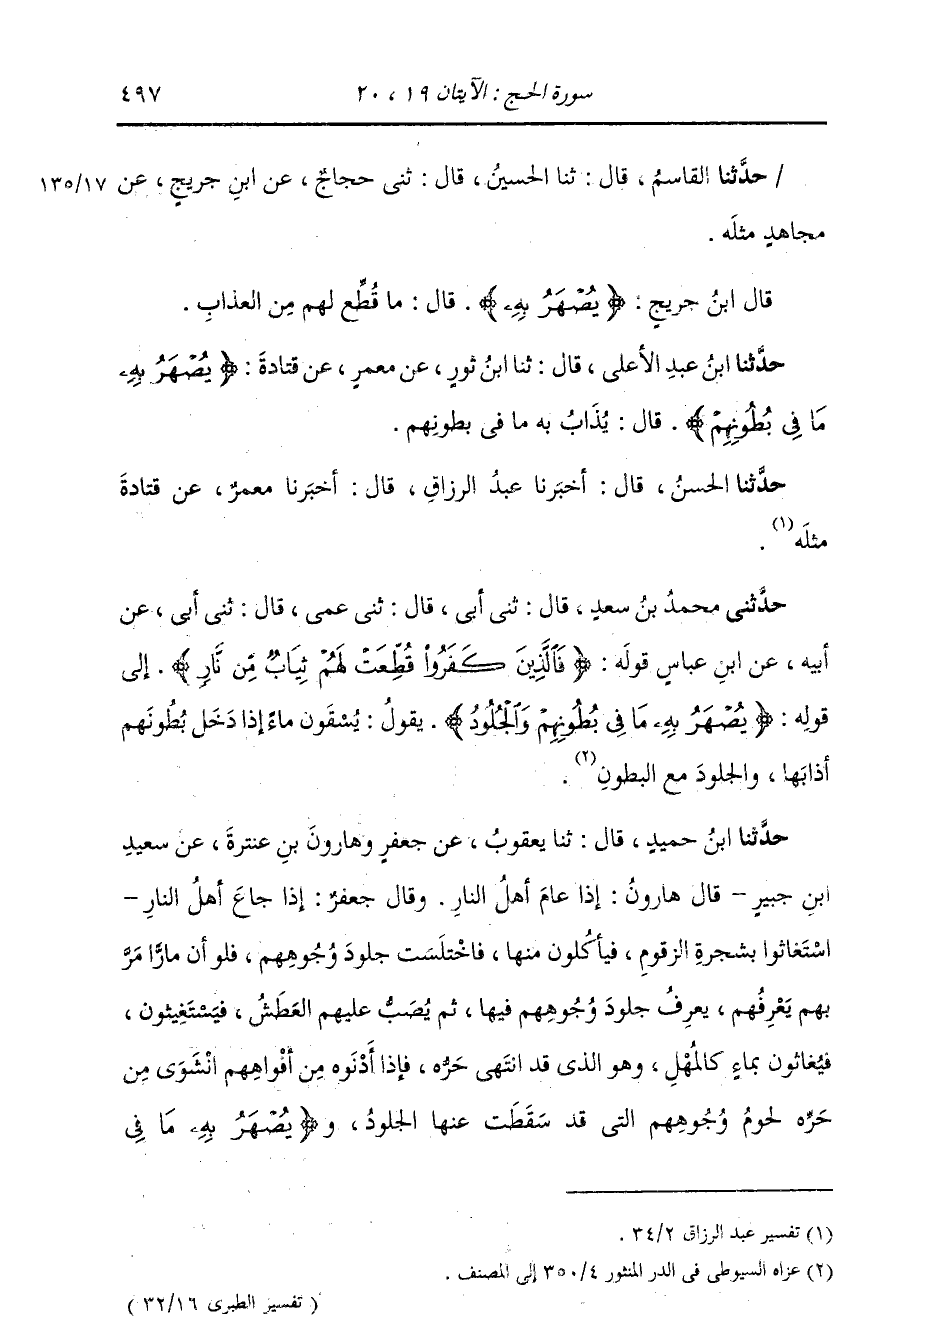 سورة الحج : الآيتان ١٩ ، ٢٠ ٤٩٧
/ حدَّثنا القاسمُ ، قال : ثنا الحسينُ ، قال : ثنى حجاجٌ ، عن ابنِ جريجٍ ، عن ١٣٥/١٧
مجاهدٍ مثلَه .
قال ابنُ جريجٍ : ﴿ يُصْهَرُ بِهِۦ ﴾ . قال : ما قُطِّع لهم مِن العذابِ .
حدَّثنا ابنُ عبدِ الأعلى ، قال : ثنا ابنُ ثورٍ ، عن معمرٍ ، عن قتادةَ : ﴿ يُصْهَرُ بِهِۦ
مَا فِى بُطُونِهِمْ ﴾ . قال : يُذَابُ به ما فى بطونِهم .
حدَّثنا الحسنُ ، قال : أخبَرنا عبدُ الرزاقِ ، قال : أخبَرنا معمرٌ ، عن قتادةَ
مثلَه (١) .
حدَّثنى محمدُ بنُ سعدٍ ، قال : ثنى أبى ، قال : ثنى عمى ، قال : ثنى أبى ، عن
أبيه ، عن ابنِ عباسٍ قولَه : ﴿ فَٱلَّذِينَ كَفَرُواْ قُطِّعَتْ لَهُمْ ثِيَابٌ مِّن نَّارٍ ﴾ . إلى
قولِه : ﴿ يُصْهَرُ بِهِۦ مَا فِى بُطُونِهِمْ وَٱلْجُلُودُ ﴾ . يقولُ : يُسْقَون ماءً إذا دَخَل بُطُونَهم
أذابَها ، والجلودَ مع البطونِ (٢) .
حدَّثنا ابنُ حميدٍ ، قال : ثنا يعقوبُ ، عن جعفرٍ وهارونَ بنِ عنترةَ ، عن سعيدِ
ابنِ جبيرٍ - قال هارونُ : إذا عامَ أهلُ النارِ . وقال جعفرٌ : إذا جاعَ أهلُ النارِ -
اسْتَغاثوا بشجرةِ الزقومِ ، فيأكُلون منها ، فاخْتلَسَت جلودَ وُجُوهِهم ، فلو أن مارًّا مَرَّ
بهم يَعْرِفُهم ، يعرِفُ جلودَ وُجُوهِهم فيها ، ثم يُصَبُّ عليهم العَطَشُ ، فيَسْتَغِيثون ،
فيُغاثون بماءٍ كالمُهْلِ ، وهو الذى قد انتَهى حَرُّه ، فإذا أَدْنَوه مِن أفْواهِهم انْشَوَى مِن
حَرِّه لحومُ وُجُوهِهم التى قد سَقَطَت عنها الجلودُ ، و﴿ يُصْهَرُ بِهِۦ مَا فِى
(١) تفسير عبد الرزاق ٣٤/٢ .
(٢) عزاه السيوطى فى الدر المنثور ٣٥٠/٤ إلى المصنف .
( تفسير الطبرى ٣٢/١٦ )